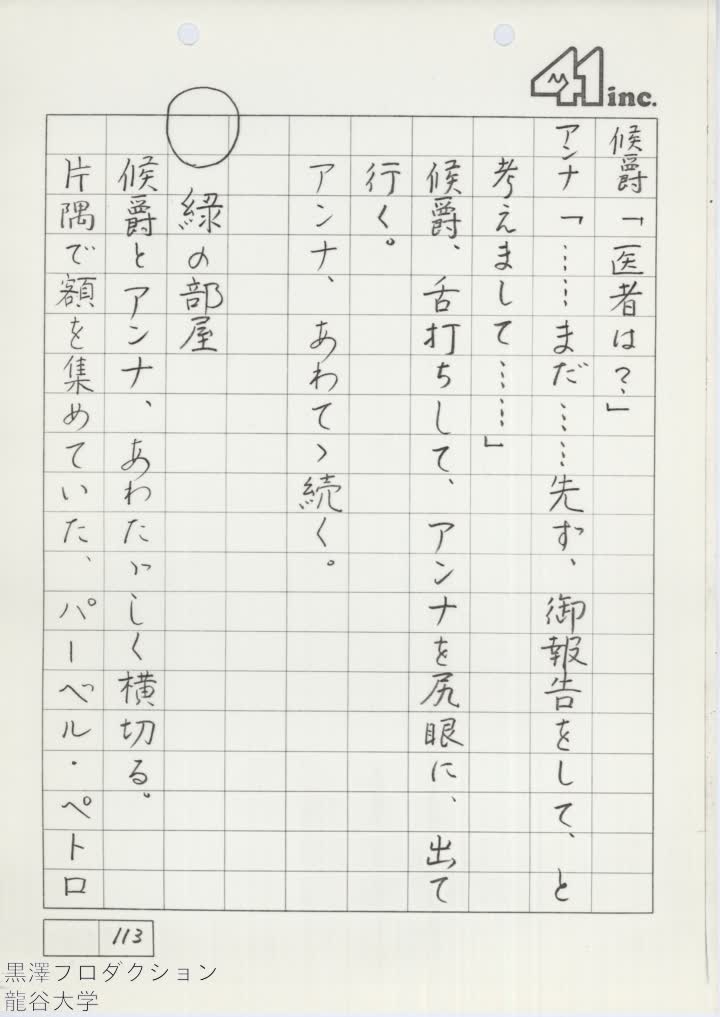 41 inc.
候爵「医者は?」
アンナ「……まだ……先ず、御報告をして、と
考えまして……」
候爵、舌打ちして、アンナを尻眼に、出て
行く。
アンナ、あわてゝ続く。
緑の部屋
候爵とアンナ、あわたゞしく横切る。
片隅で額を集めていた、パーベル・ペトロ
113
黒澤プロダクション
龍谷大学